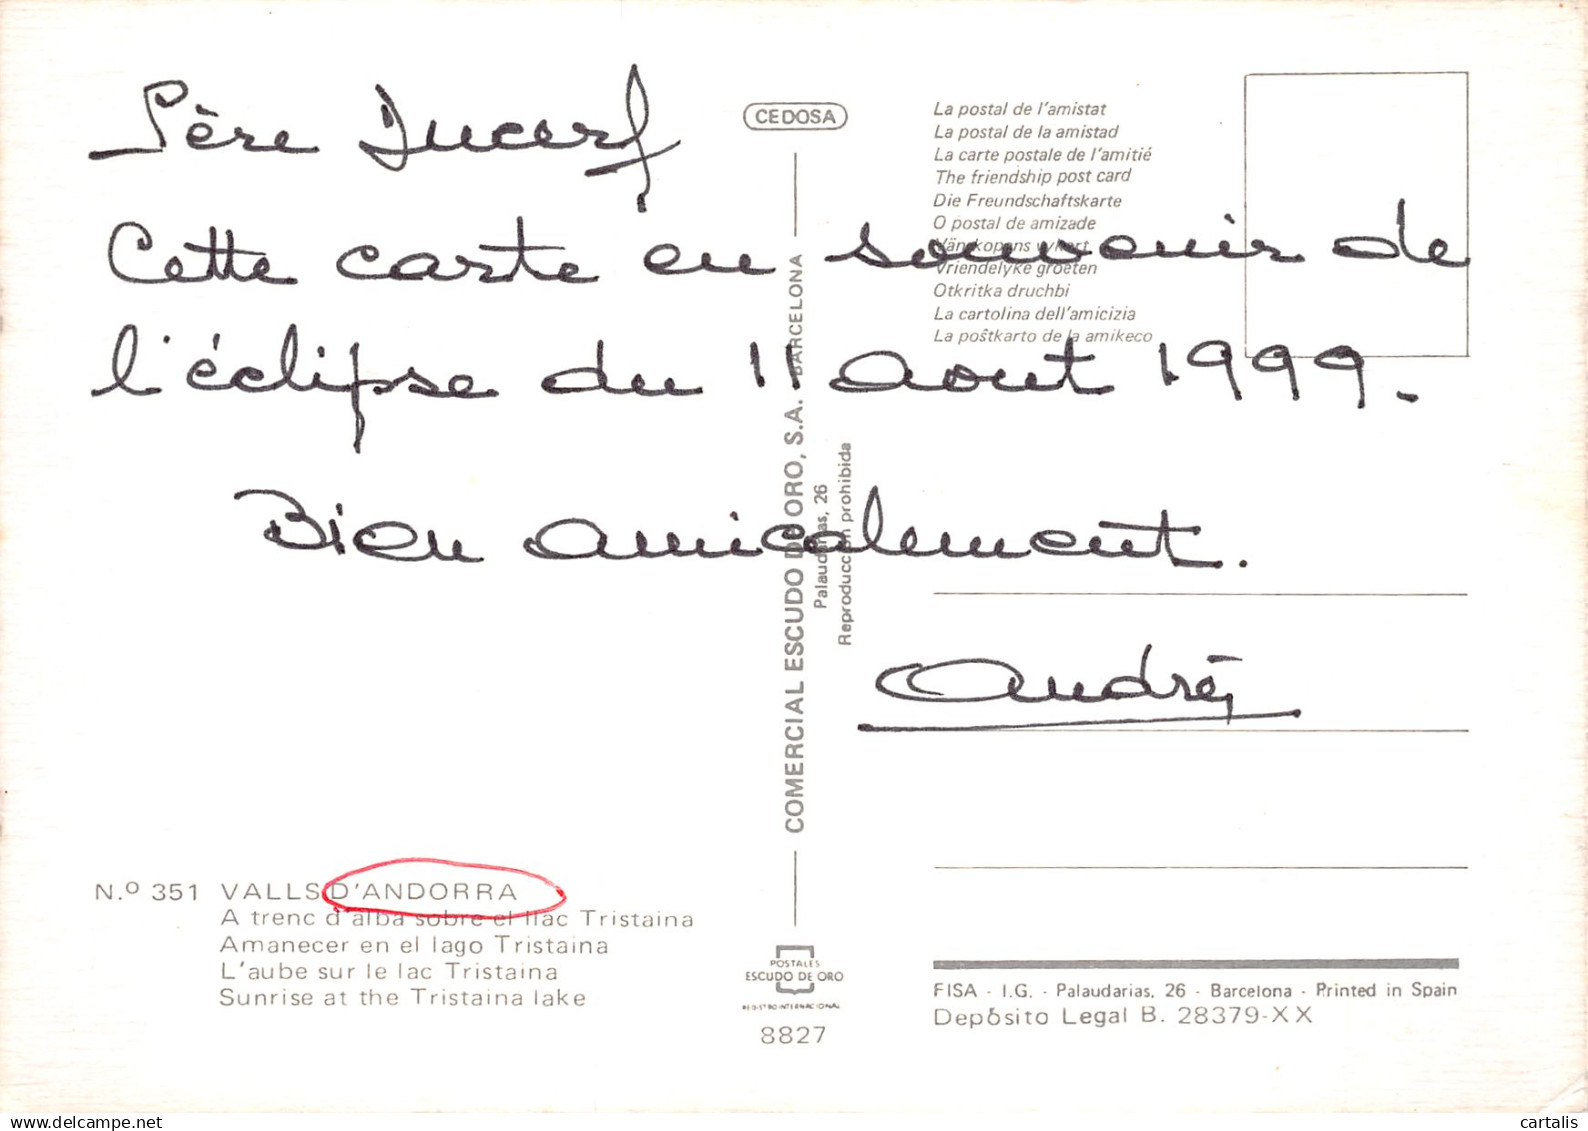 Père Ducerf
Cette carte en souvenir de
l'éclipse du 11 aout 1999.
Bien amicalement.
André
CEDOSA
La postal de l'amistat
La postal de la amistad
La carte postale de l'amitié
The friendship post card
Die Freundschaftskarte
O postal de amizade
Vänskapens vykort
Vriendelyke groeten
Otkritka druchbi
La cartolina dell'amicizia
La poŝtkarto de la amikeco
COMERCIAL ESCUDO DE ORO, S.A. BARCELONA
Palaudarias, 26
Reproducción prohibida
N.º 351 VALLS D'ANDORRA
A trenc d'alba sobre el llac Tristaina
Amanecer en el lago Tristaina
L'aube sur le lac Tristaina
Sunrise at the Tristaina lake
POSTALES
ESCUDO DE ORO
REGISTRO INTERNACIONAL
8827
FISA - I.G. - Palaudarias, 26 - Barcelona - Printed in Spain
Depósito Legal B. 28379-XX
cartalis